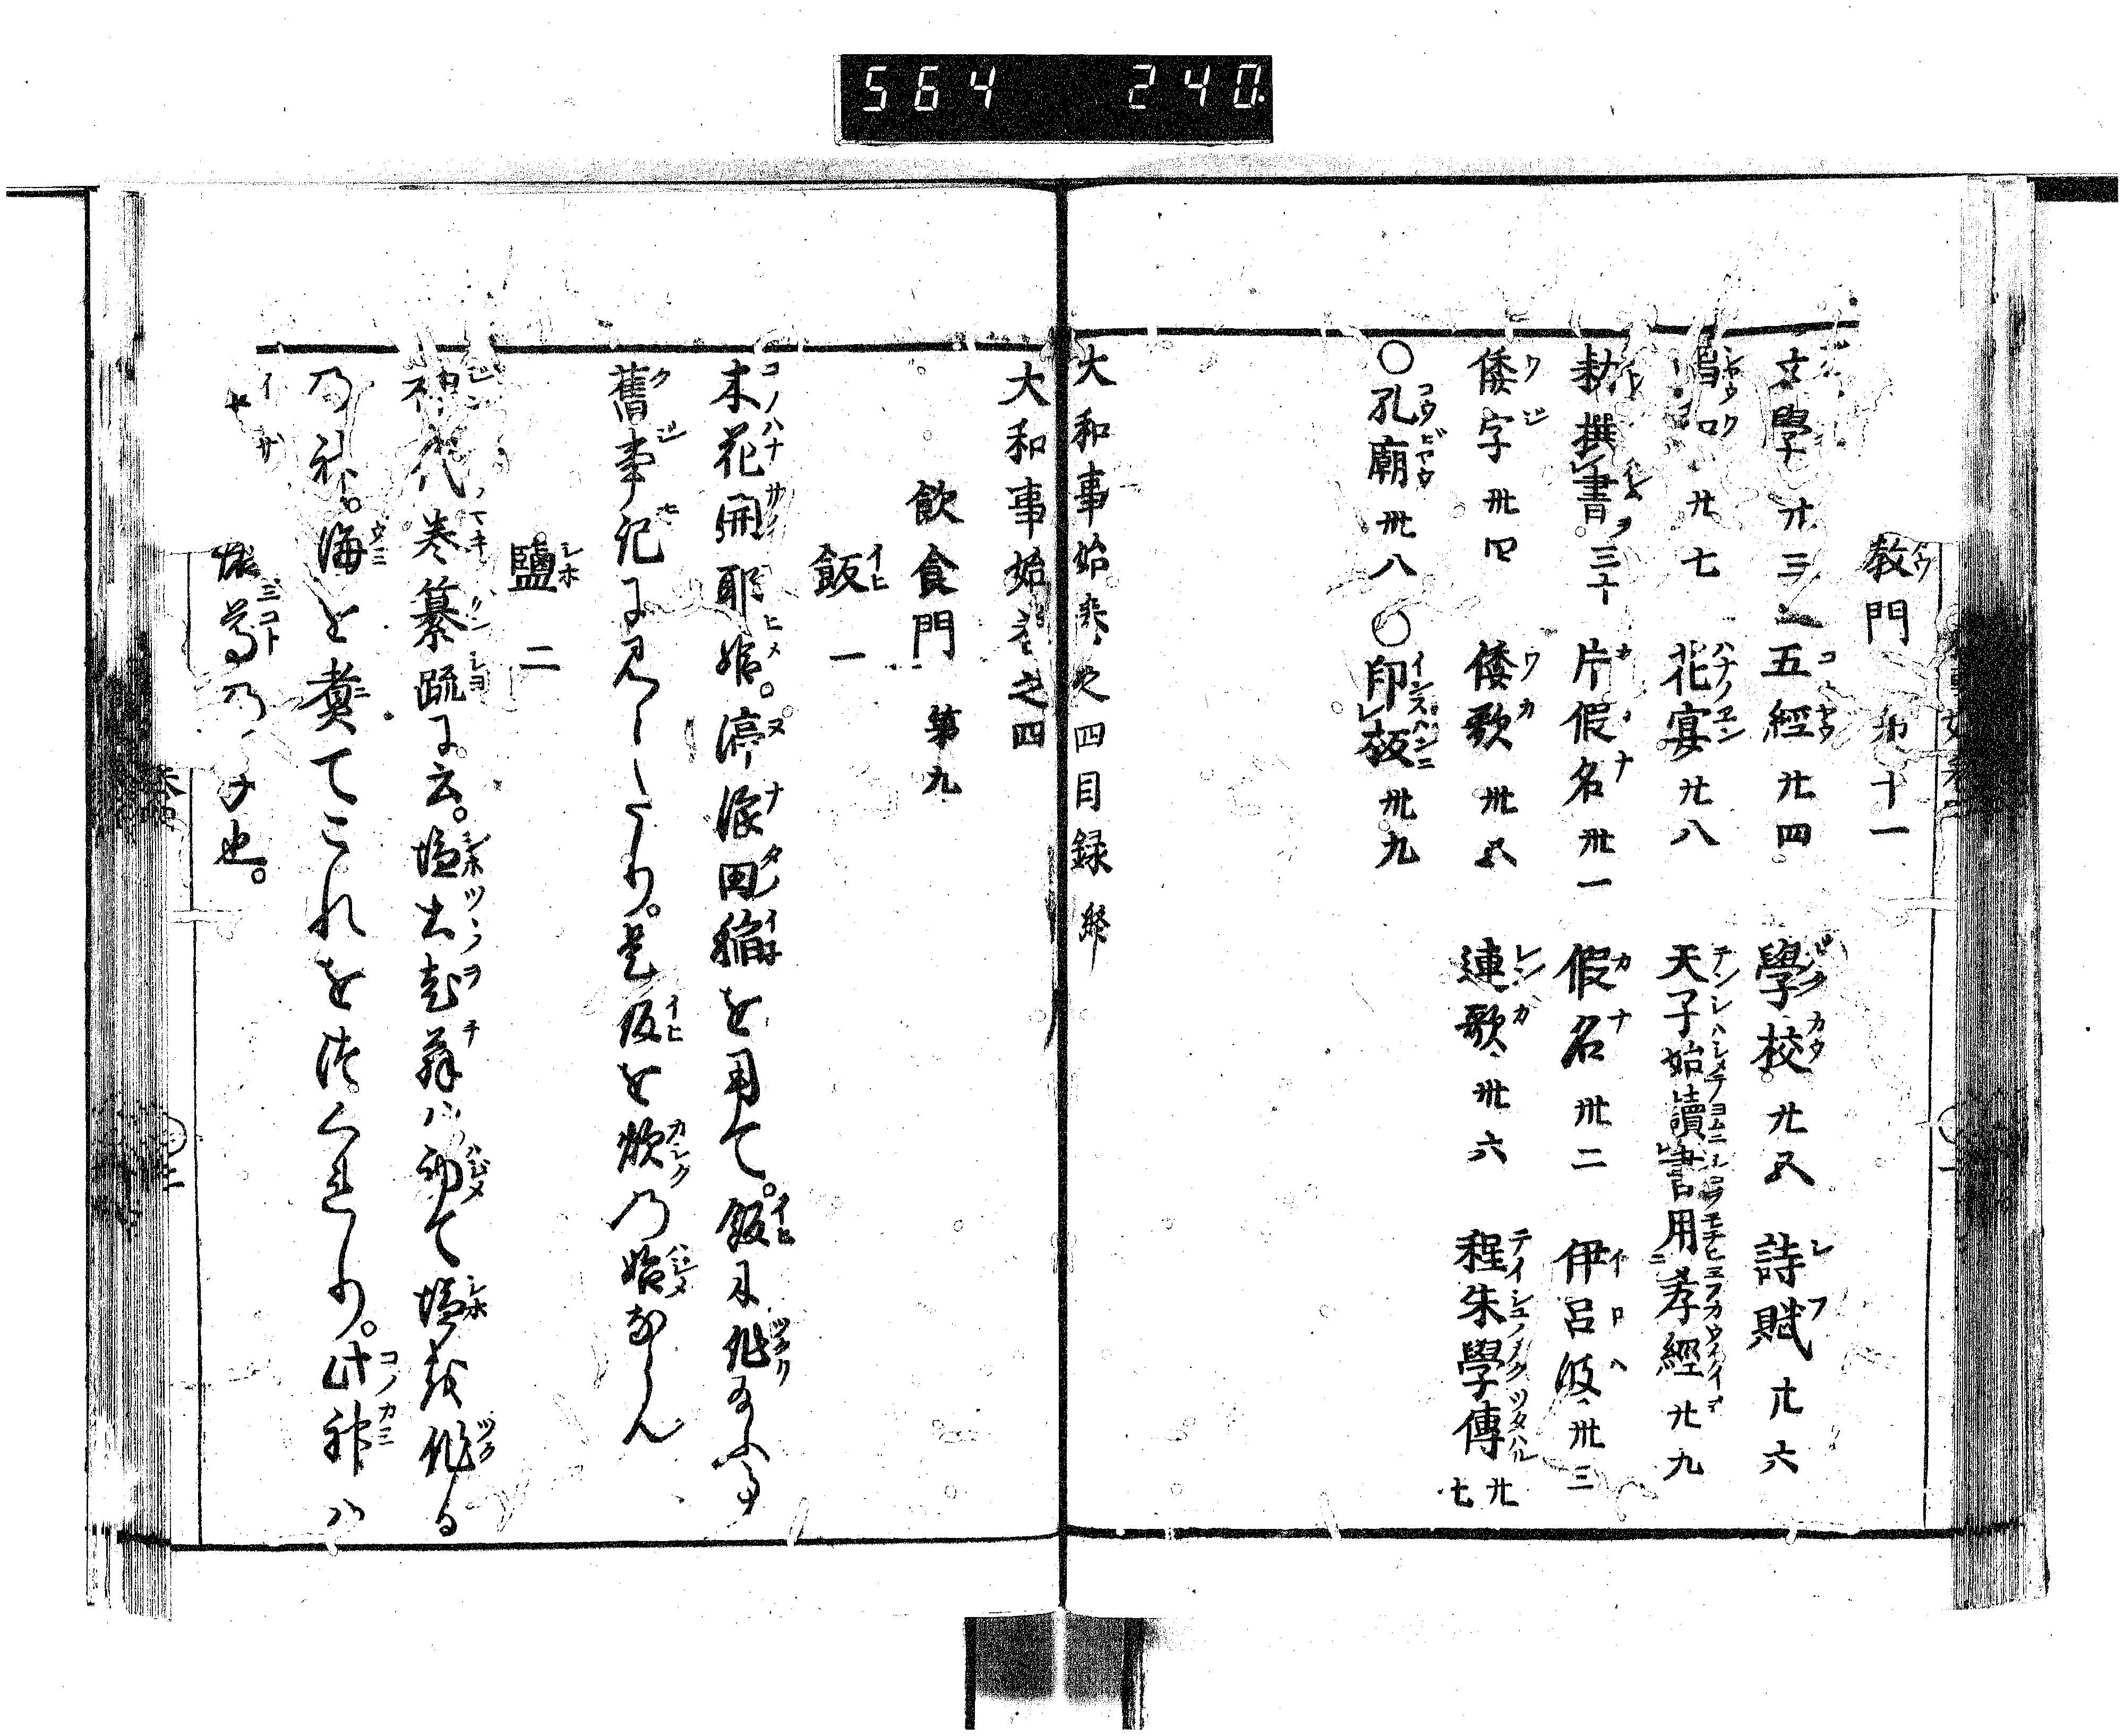 564 240
教門 第十一
文學 廿三 五經 廿四 學校 廿五 詩賦 廿六
廿七 花宴 廿八 天子始讀書用孝經 廿九
勅撰書 三十 片假名 卅一 假名 卅二 伊呂波 卅三
倭字 卅四 倭歌 卅五 連歌 卅六 程朱學傳 卅七
○孔廟 卅八 ○印板 卅九
大和事始巻之四目録 終
大和事始巻之四
飲食門 第九
飯 一
木花開耶姫。渟浪田稲を用て。飯に作給ふ事
舊事記に見えたり。是飯を炊の始ならん
鹽 二
神代巻纂疏に云。塩土老翁ハ初て塩を作る
の神。海を煮てこれをつくれり。此神ハ
尊の子也。